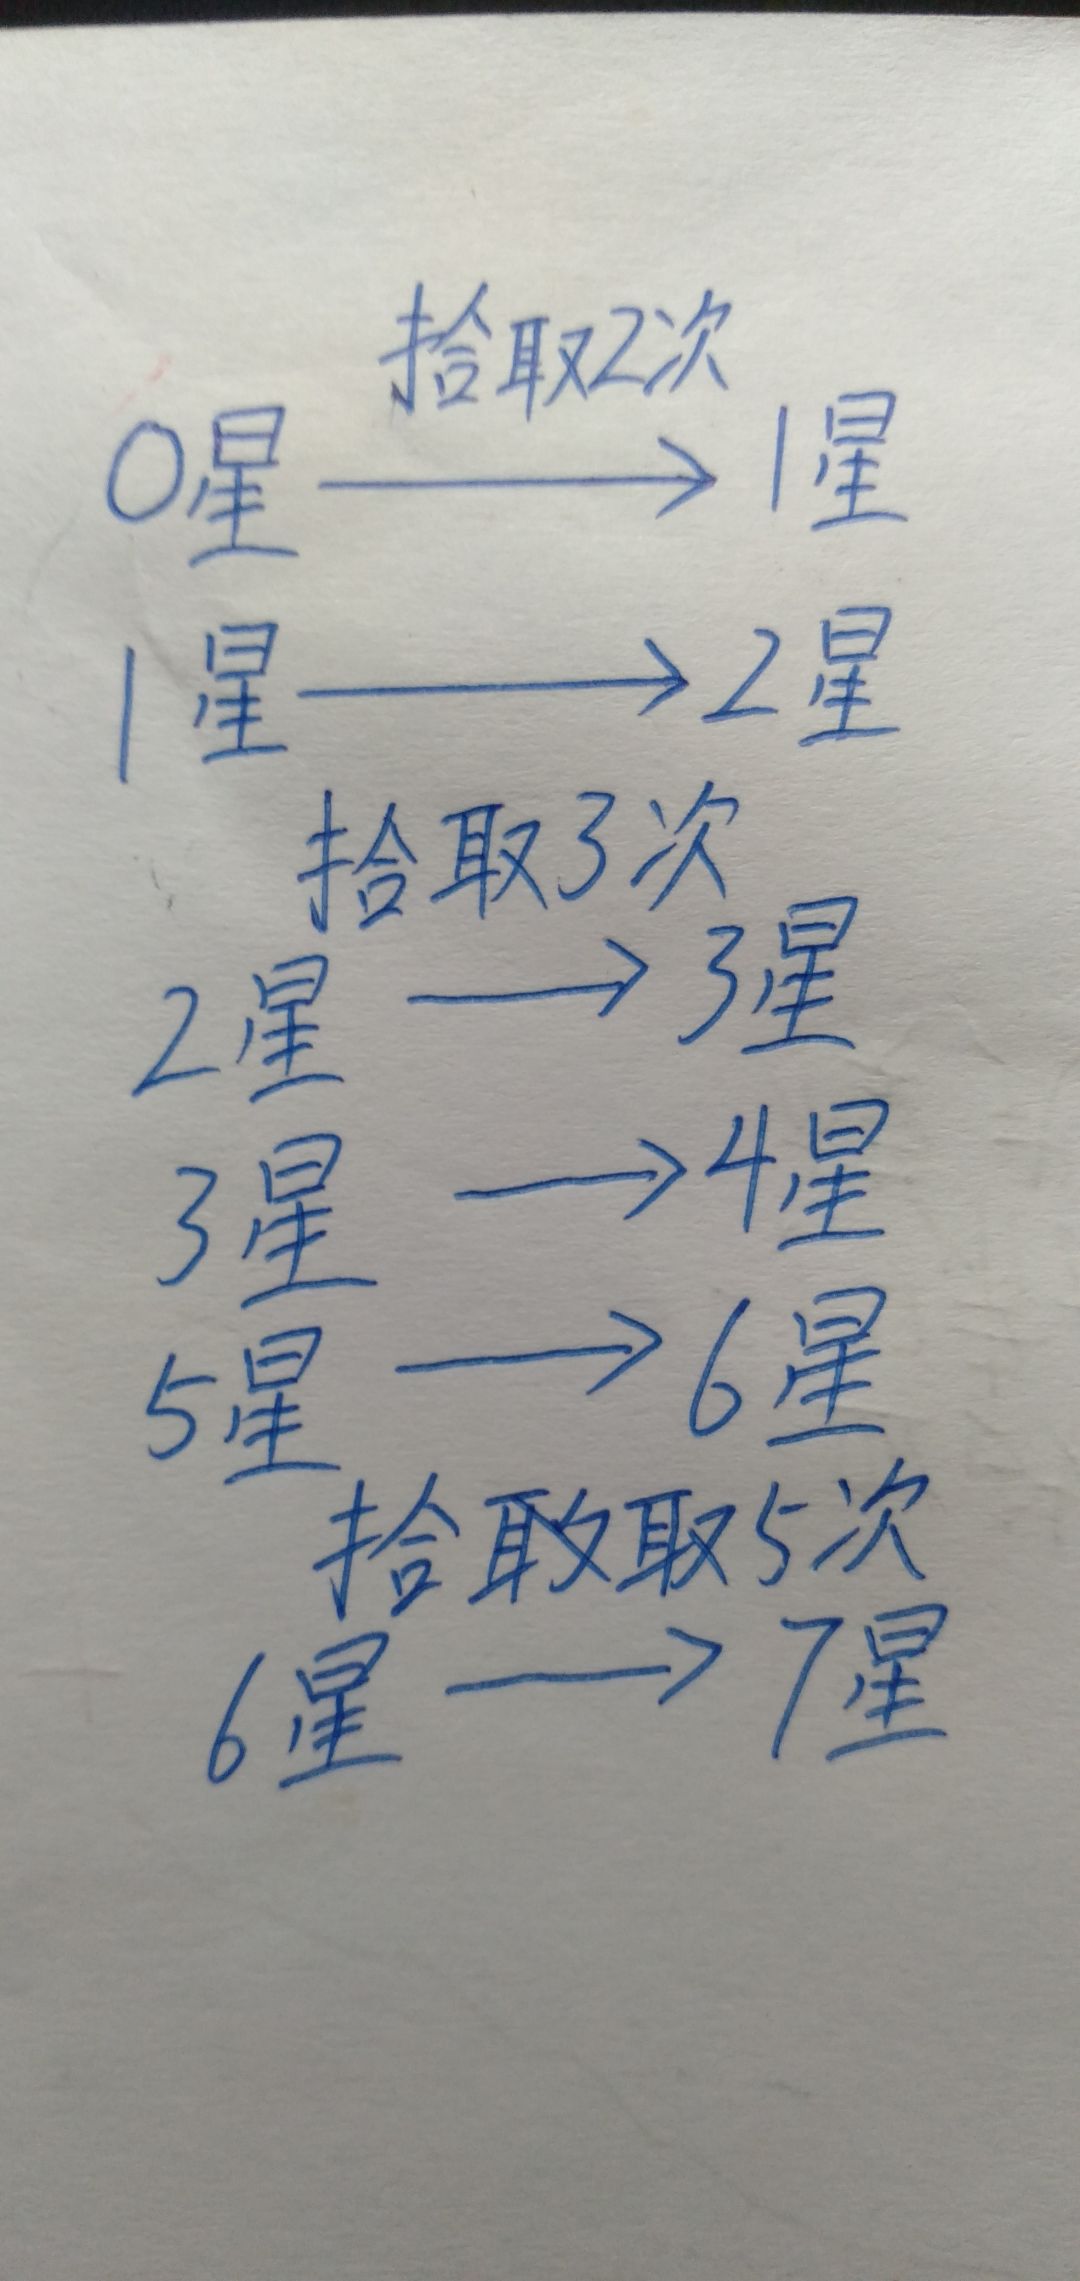 拾取2次
0星 → 1星
1星 → 2星
拾取3次
2星 → 3星
3星 → 4星
5星 → 6星
拾取取5次
6星 → 7星